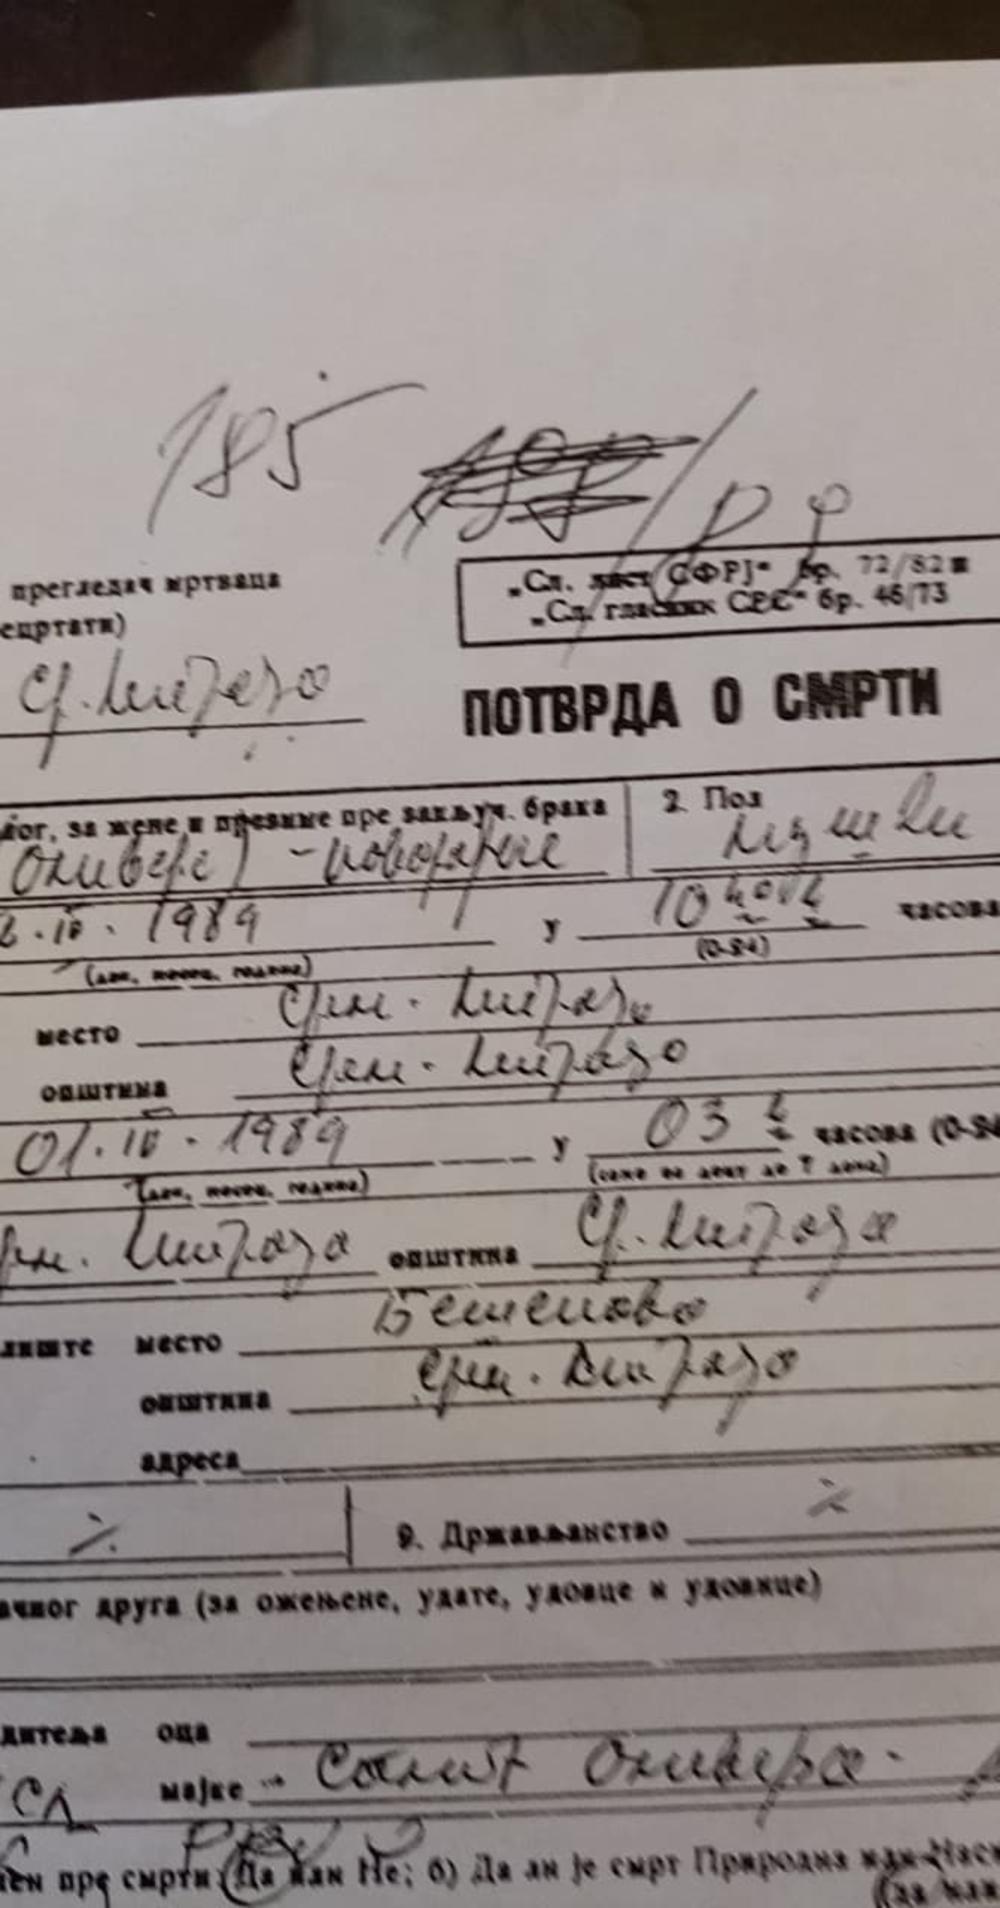 185
прегледач мртваца
„Сл. лист СФРЈ“ бр. 72/82 и
„Сл. гласник СРС“ бр. 46/73
ецртати)
Ср. Митров
ПОТВРДА О СМРТИ
ког, за жене и презиме пре закључ. брака
2. Пол
Оливера - новорођче
мушки
IV. 1989 у 10 часова
(дан, месец, година) (0-24)
место Срем. Митров
општина Срем. Митров
01. IV. 1989 у 03 часова (0-24
(дан, месец, година) (само за децу до 7 дана)
рем. Митров општина Ср. Митров
лиште место Бешеново
општина Срем. Митров
адреса
9. Држављанство
ачног друга (за ожењене, удате, удовце и удовице)
дитеља оца
мајке Оливера
чен пре смрти: Да или Не; б) Да ли је смрт Природна или Нас
(да или